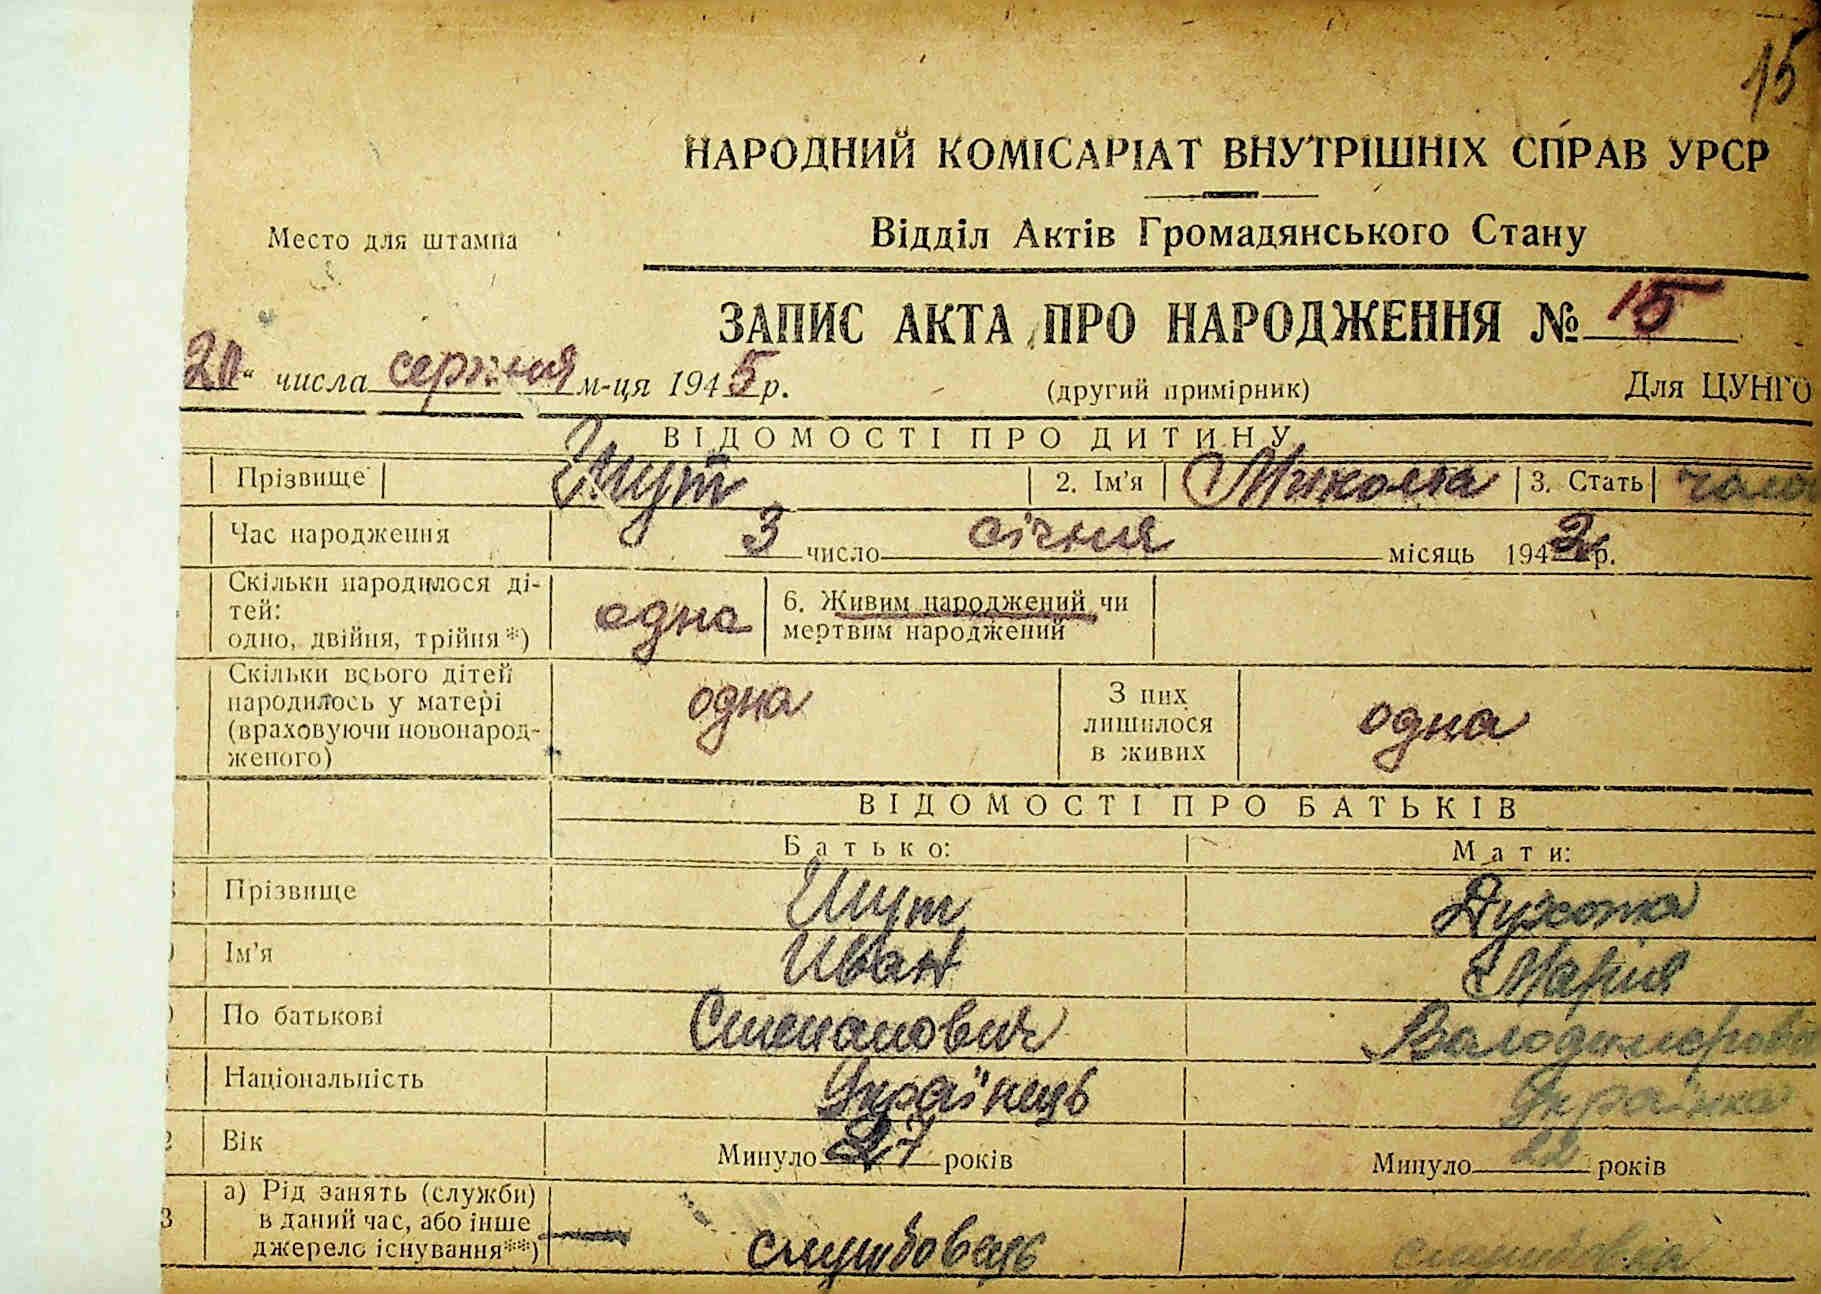 15
НАРОДНИЙ КОМІСАРІАТ ВНУТРІШНІХ СПРАВ УРСР
Место для штампа
Відділ Актів Громадянського Стану
ЗАПИС АКТА ПРО НАРОДЖЕННЯ № 15
20" числа серпня м-ця 1945 р. (другий примірник) Для ЦУНГО
ВІДОМОСТІ ПРО ДИТИНУ
Прізвище Шут 2. Ім'я Микола 3. Стать чолов
Час народження 3 число січня місяць 1942 р.
Скільки народилося ді-
тей:
одно, двійня, трійня*) одна 6. Живим народжений чи
мертвим народжений
Скільки всього дітей
народилось у матері
(враховуючи новонарод-
женого) одна З них
лишилося
в живих одна
ВІДОМОСТІ ПРО БАТЬКІВ
Батько: Мати:
Прізвище Шут Духота
Ім'я Иван Марія
По батькові Степанович Володимеровна
Національність Українець Українка
2 Вік Минуло 27 років Минуло 22 років
3 а) Рід занять (служби)
в даний час, або інше
джерело існування**) службовець службовка